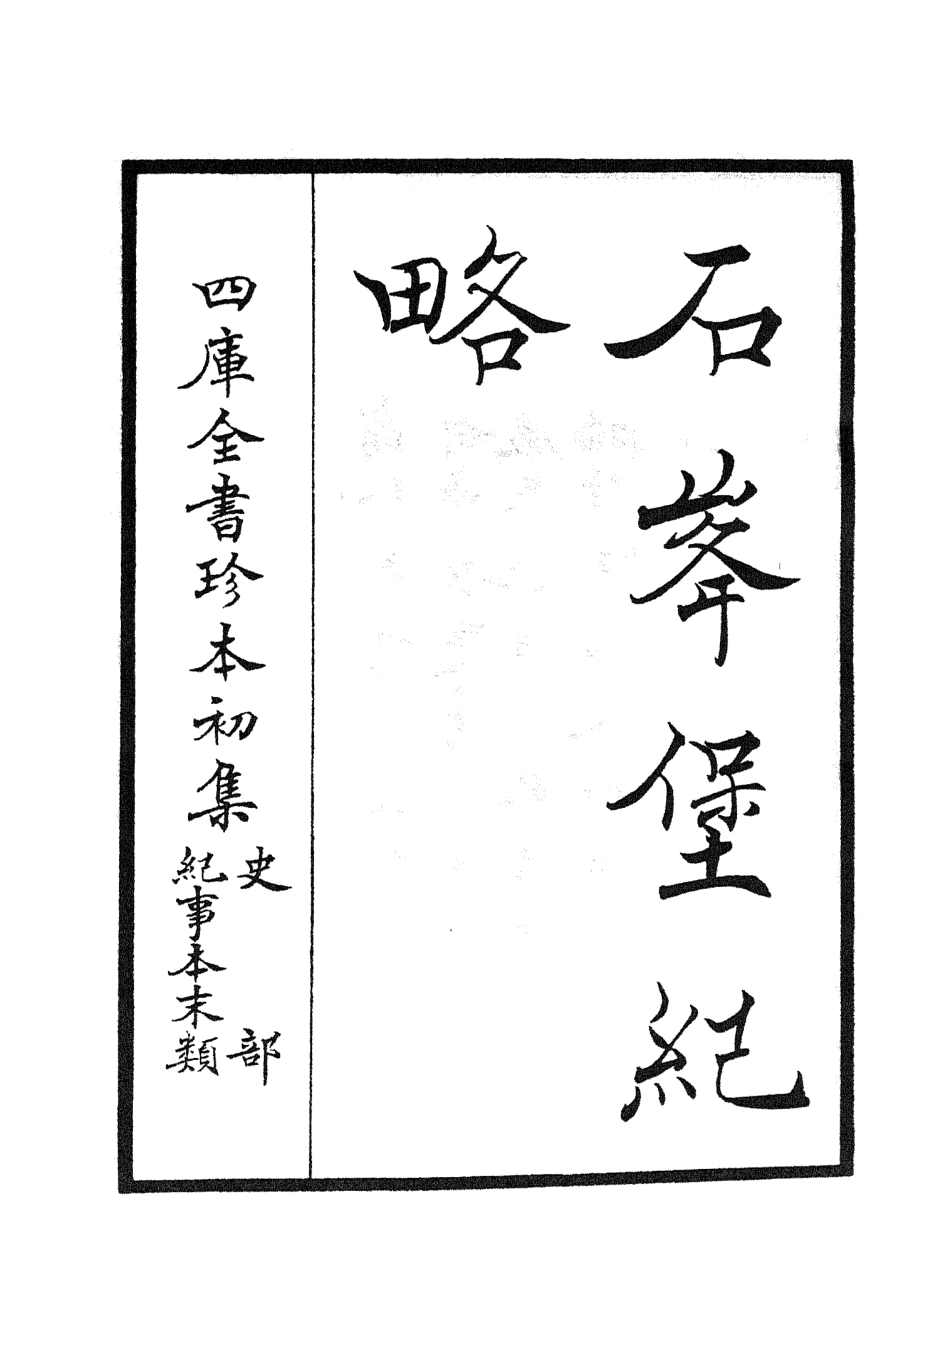 石峯堡紀
略
四庫全書珍本初集
史部
紀事本末類